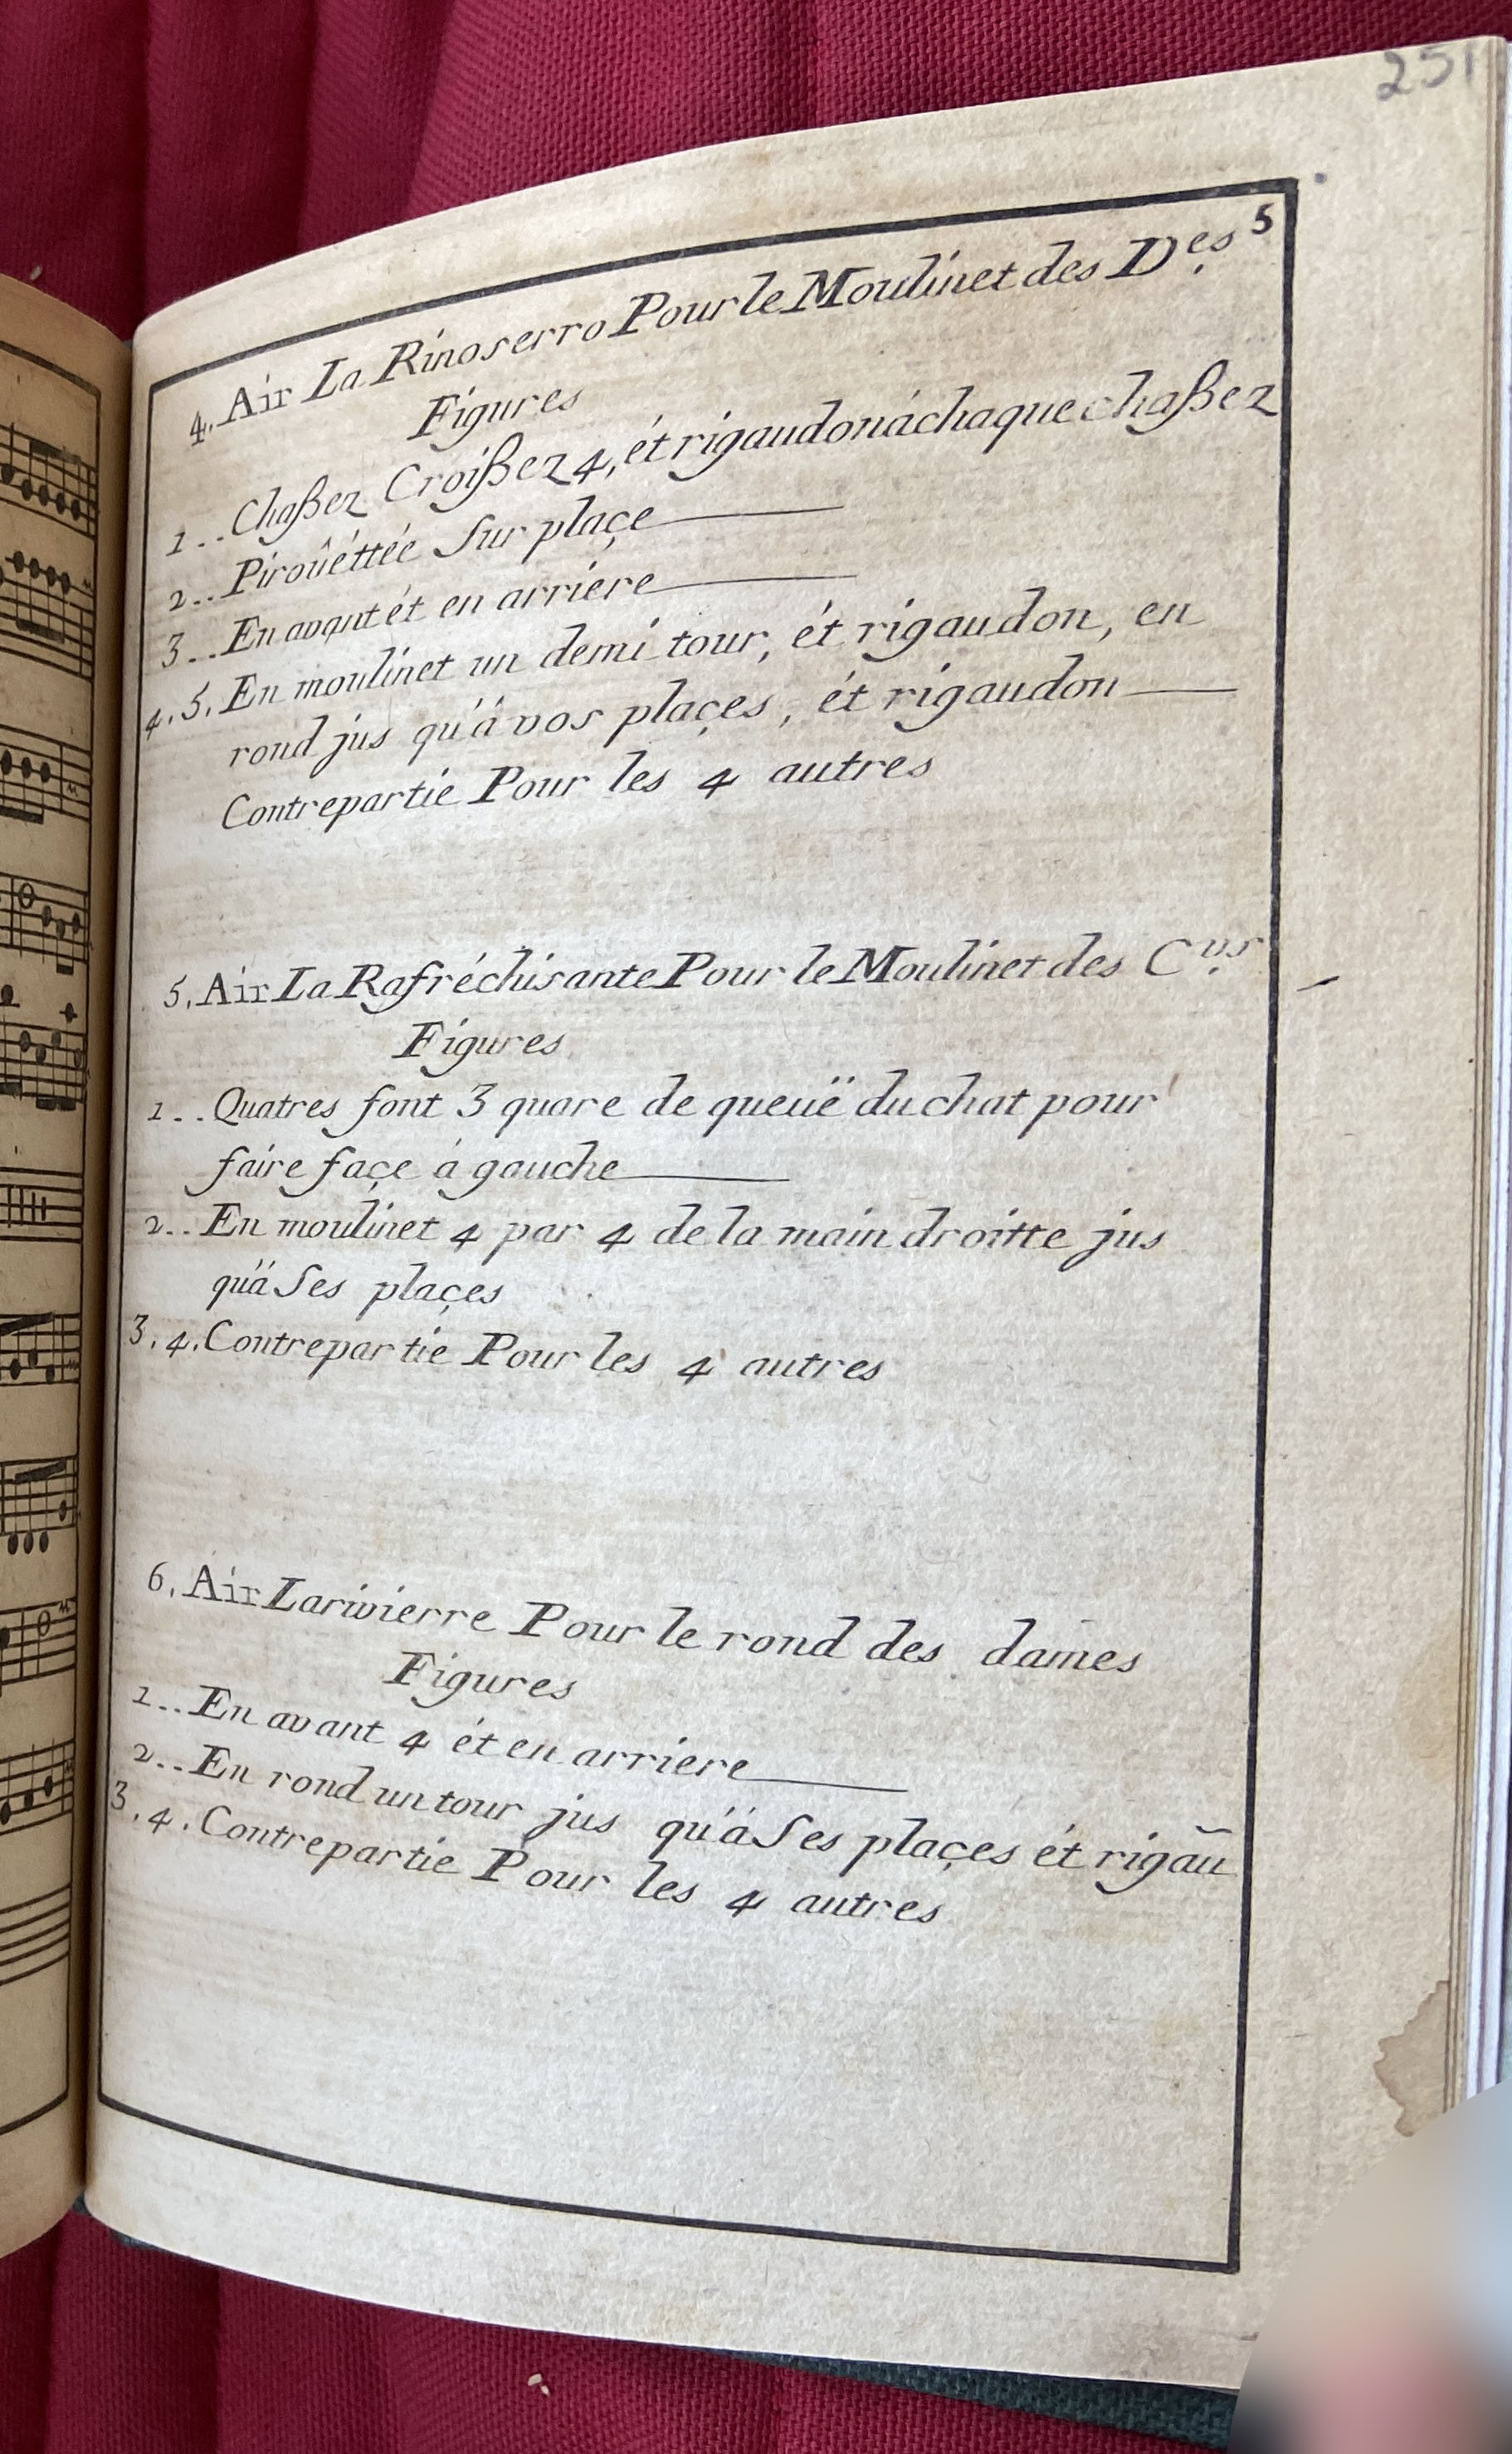 251
5
4. Air La Rinoserro Pour le Moulinet des D.es
Figures
1.. Chaßez Croißez 4, ét rigaudon á chaque chaßez
2.. Piroûéttée Sur plaçe
3.. En avant ét en arriere
4.5. En moulinet un demi tour, ét rigaudon, en
rond jus qu'á vos plaçes, ét rigaudon
Contrepartie Pour les 4 autres
5. Air La Rafréchisante Pour le Moulinet des C.vs
Figures
1.. Quatres font 3 quare de queuë du chat pour
faire façe á gauche
2.. En moulinet 4 par 4 de la main droitte jus
qu'á Ses plaçes
3.4. Contrepartie Pour les 4 autres
6. Air Larivierre Pour le rond des dames
Figures
1.. En avant 4 ét en arriere
2.. En rond un tour jus qu'á Ses plaçes ét rigāu
3.4. Contrepartie Pour les 4 autres